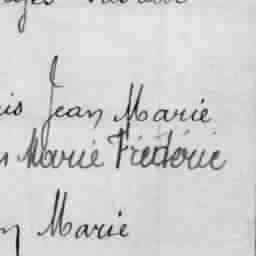 is Jean Marie
Marie Frédéric
Marie